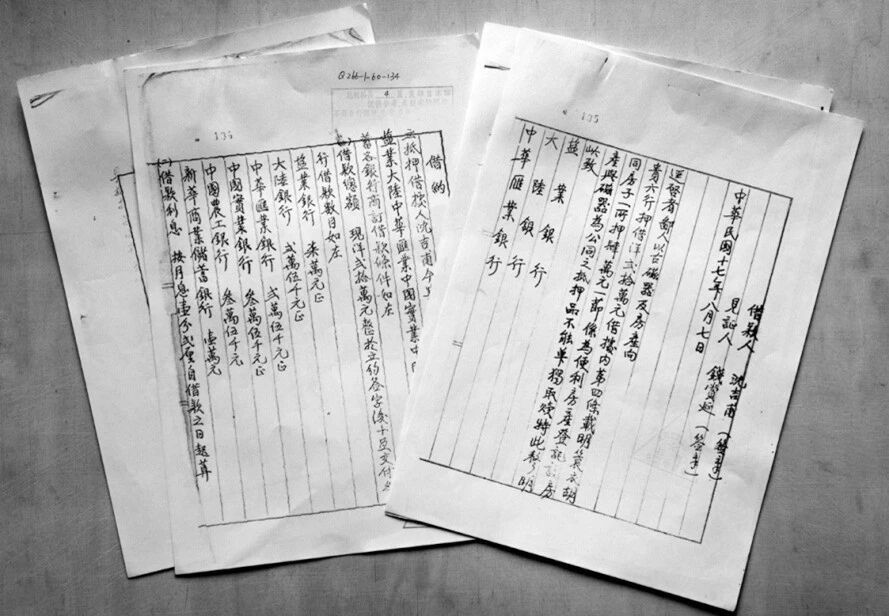 Q266-1-60-134
135
借約
立抵押借據人沈吉甫今向
鹽業大陸中華匯業中國實業中國
蓄各銀行商訂借款條件如左
(一)借款總額 現洋弍拾萬元整於立約簽字後十足交付各
行借款数目如左
鹽業銀行 柒萬元正
大陸銀行 弍萬伍千元正
中華匯業銀行 弍萬伍千元正
中國實業銀行 叁萬伍千元正
中國農工銀行 叁萬伍千元
新華商業儲蓄銀行 壹萬元
(二)借款利息 按月息壹分弍厘自借款之日起算
135
借款人 沈吉甫(簽字)
見証人 錢賞延(簽字)
中華民國十七年八月七日
逕啓者鄙人以古磁器及房產向
貴六行押借洋弍拾萬元借據內第四條載明蓑衣胡
同房子一所押 萬元一節係為便利房產登記計房
產與磁器為公同之抵押品不能单獨取贖特此聲明
此致
鹽業銀行
大陸銀行
中華匯業銀行